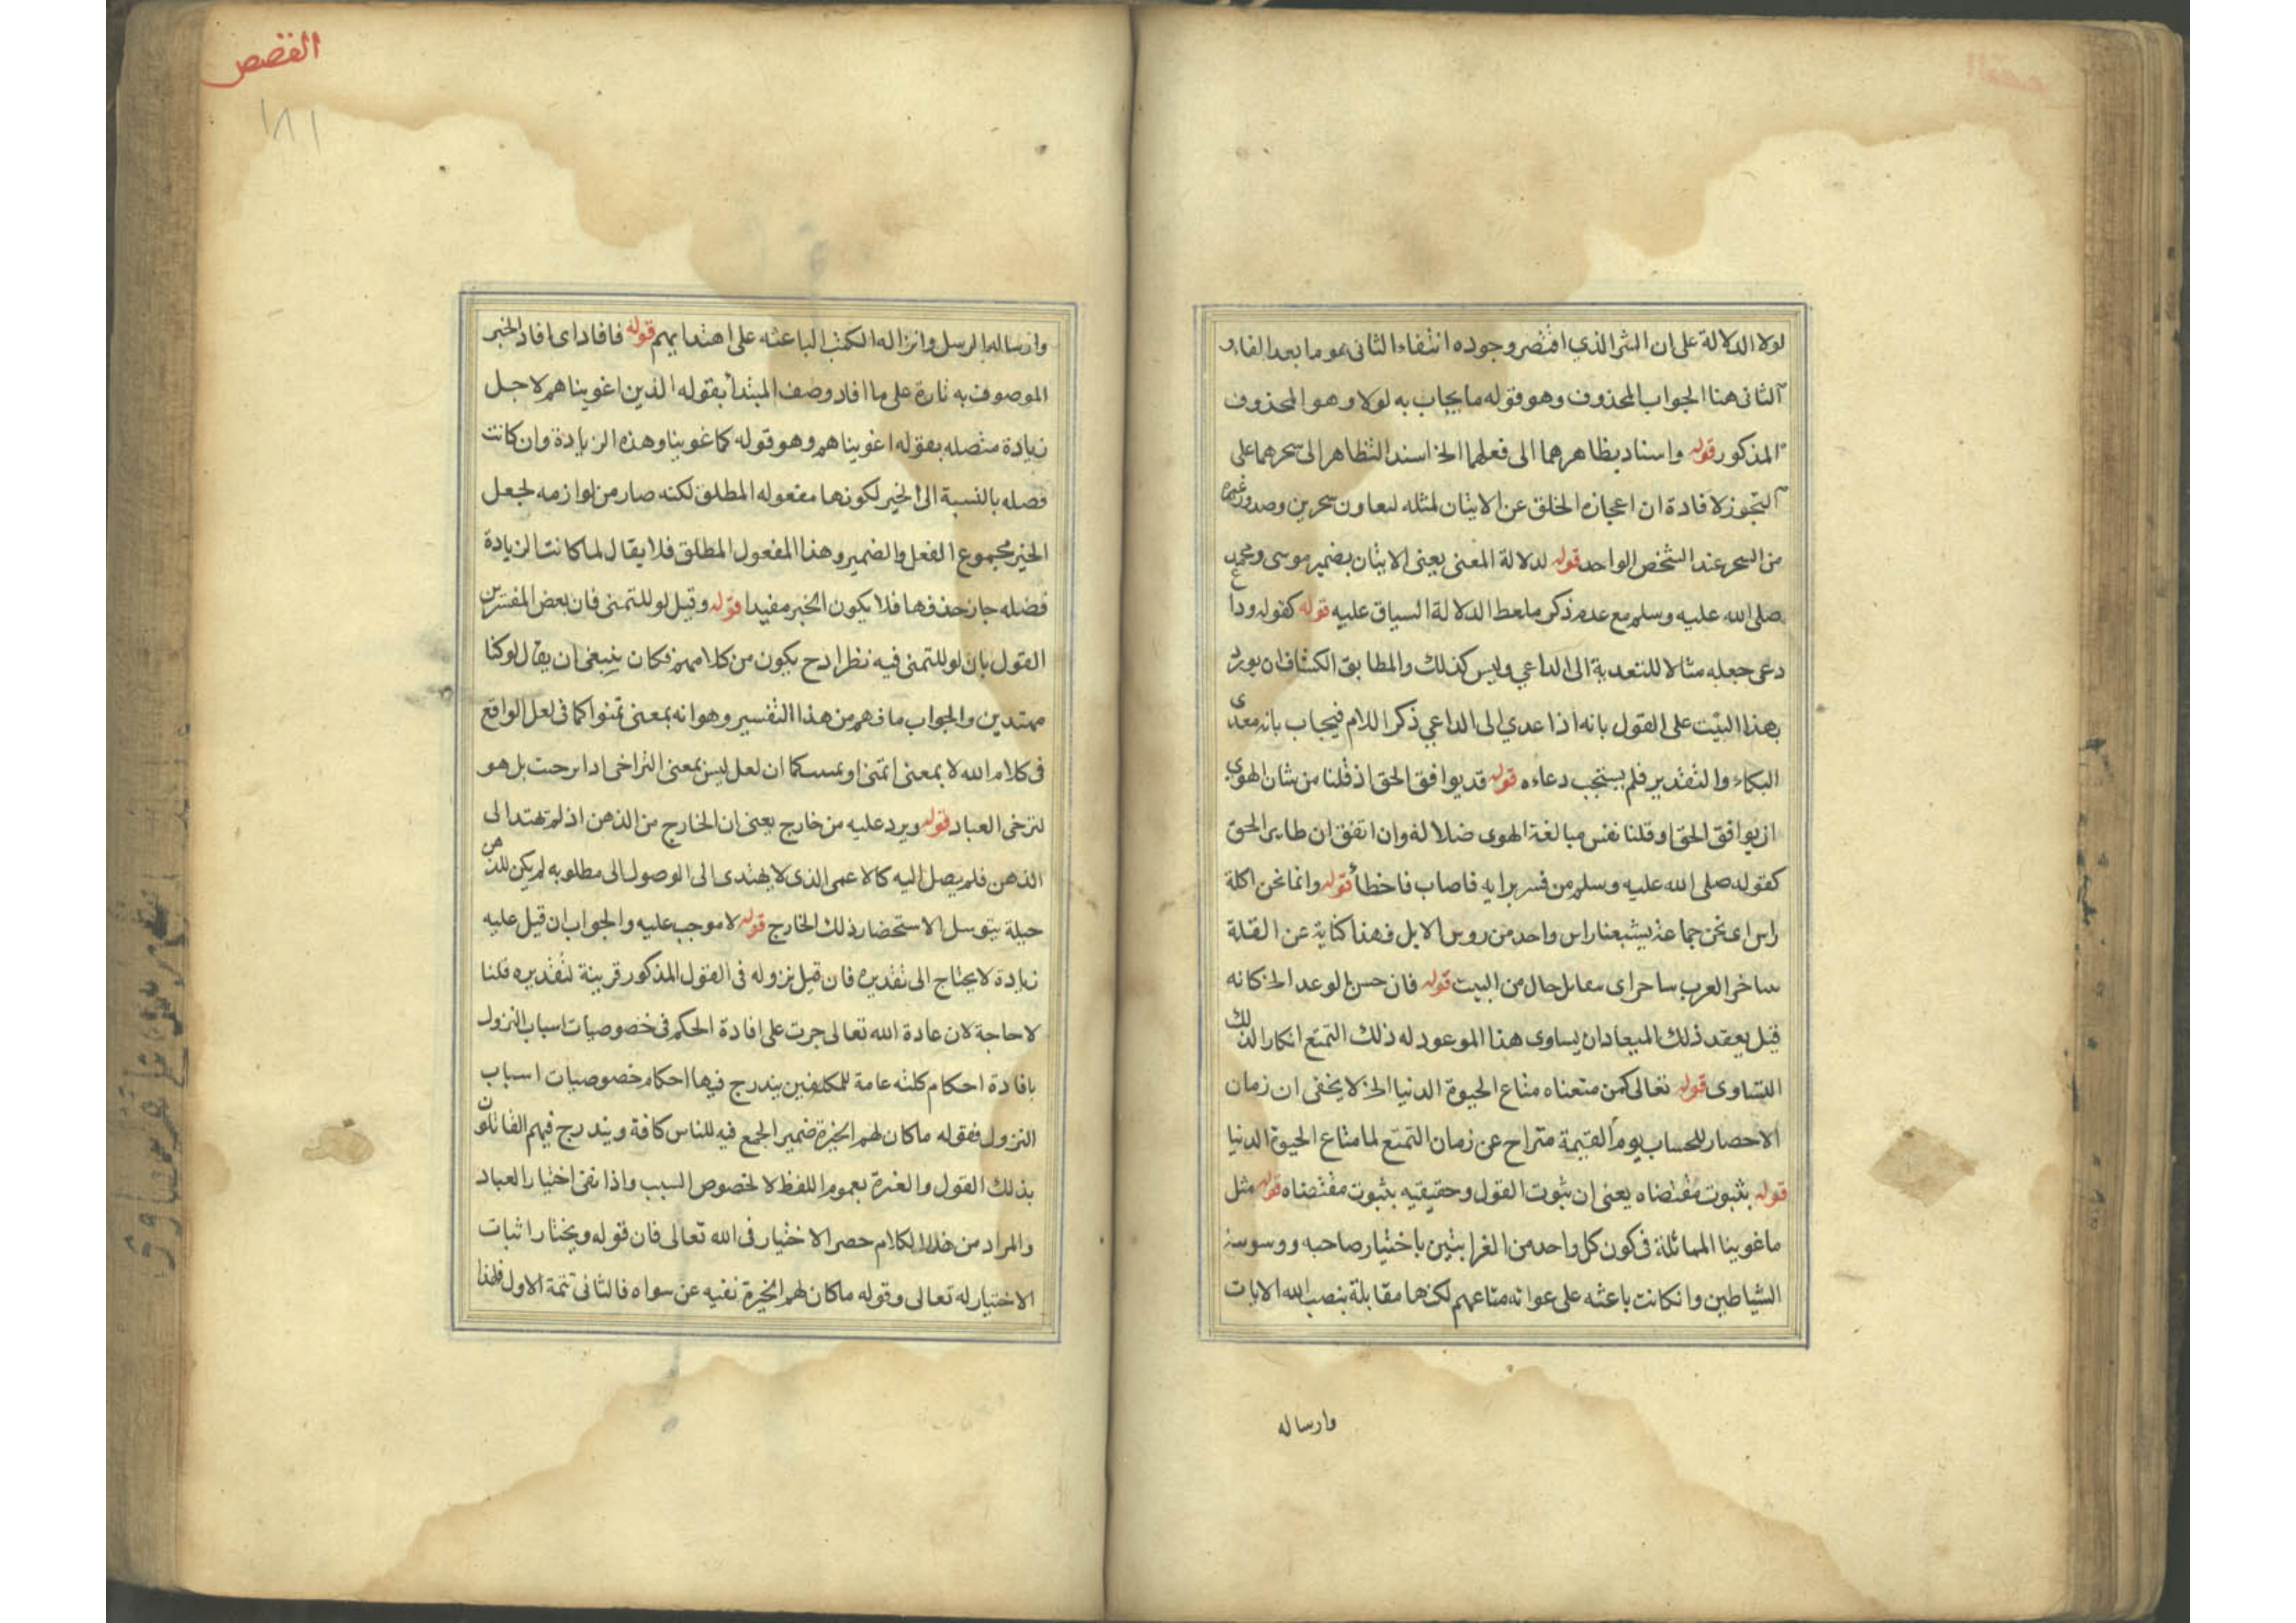 لولا الدلالة على ان الشر الذي اقتضر وجوده انتفاء الثانى هو ما بعد الفاء و
الثانى هنا الجواب المحذوف وهو قوله ما يجاب به لولا وهو المحذوف
المذكور قوله واسناد تظاهرهما الى فعلهما الخ اسند التظاهر الى سحرهما على
التجوز لافادة ان اعجازه الخلق عن الاتيان لمثله لتعاون سحرين وصدور
من السحر عند الشخص الواحد قوله لدلالة المعنى يعنى الاتيان بضمير موسى ومحمد
صلى الله عليه وسلم مع عدم ذكر الدلالة السياق عليه قوله كقوله وداع
دعى جعله مثالا للتعدية الى الداعي وليس كذلك والمطابق الكشاف ان يورد
بهذا البيت على القول بانه اذا عدي الى الداعي ذكر اللام فيجاب بانه معدى
البكاء والتقدير فلم يستجب دعاءه قوله قد يوافق الحق اذ قلنا من شان الهوى
ان يوافق الحق او قلنا نفس مبالغة الهوى ضلالة وان اتفق ان طاير الحق
كقوله صلى الله عليه وسلم من فسر برايه فاصاب فاخطأ قوله وانما نحن اكلة
راس اى نحن جماعة يشبعنا راس واحد من روس الابل فهنا كناية عن القلة
العرب ساحر اى حال من البيت قوله فان حسن الوعد الخ كانه
قيل بعقد ذلك الميعاد ان يساوى هذا الموعود له ذلك التمتع انكار الذلك
التساوى قوله تعالى كمن متعناه متاع الحيوة الدنيا الخ لا يخفى ان زمان
الاحصار للحساب يوم القيمة متراح عن زمان التمتع لما متاع الحيوة الدنيا
قوله بثبوت مقتضاه يعنى ان ثبوت القول وحقيقيه بثبوت مقتضاه قوله مثل
ماغوينا المماثلة فى كون كل واحد من الغرابتين باختيار صاحبه ووسوسة
الشياطين وانكانت باعثه على غوانه متاعهم لكنها مقابلة بنصب الله الايات
وارساله
القصص
١٨١
وارساله الرسل وانزاله الكتب الباعثه على اهتدايهم قوله فافاد اى افاد الخبر
الموصوف به تارة على ما افاد وصف المبتدأ بقوله الذين اغويناهم لاجل
زيادة متصله بقوله اغويناهم وهو قوله كما غوينا وهذه الزيادة وان كانت
فضله بالنسبة الى الخير لكونها مفعوله المطلق لكنه صار من لوازمه لجعل
الخير مجموع الفعل والضمير وهذا المفعول المطلق فلا يقال لما كانت الزيادة
فضله جاز حذفها فلا يكون الخبر مفيدا قوله وقيل لو للتمنى فان بعض المفسرين
القول بان لو للتمنى فيه نظر اذ ح يكون من كلامهم فكان ينبغى ان يقال لو كنا
مهتدين والجواب ما فهم من هذا التفسير وهو انه بمعنى تمنوا كما فى لعل الواقع
فى كلام الله لا بمعنى اتمنى او كما ان لعل ليس بمعنى التراخى بل هو
لترخى العباد قوله ويرد عليه من خارج يعنى ان الخارج من الذهن اذ لم تهتد الى
الذهن فلم يصل اليه كالاعمى الذى لا يهتدى الى الوصول الى مطلوبه لم يكن للذهن
حيلة يتوسل الاستحضار ذلك الخارج قوله لا موجب عليه والجواب ان قيل عليه
زيادة لا يحتاج الى تقديره فان قيل نزوله فى القول المذكور قرينة لتقديره قلنا
لا حاجة لان عادة الله تعالى جرت على افادة الحكم فى خصوصيات اسباب النزول
بافادة احكام كلته عامة للمكلفين يندرج فيها احكام خصوصيات اسباب
النزول فقوله ماكان لهم الخيرة ضمير الجمع فيه للناس كافة ويندرج فيهم القائلون
بذلك القول والعبرة بعموم اللفظ لا لخصوص السبب واذا نفى اختيار العباد
والمراد من هذا الكلام حصر الاختيار فى الله تعالى فان قوله ويختار اثبات
الاختيار له تعالى وقوله ماكان لهم الخيرة نفيه عن سواه فالثانى تتمة الاول فلهذا